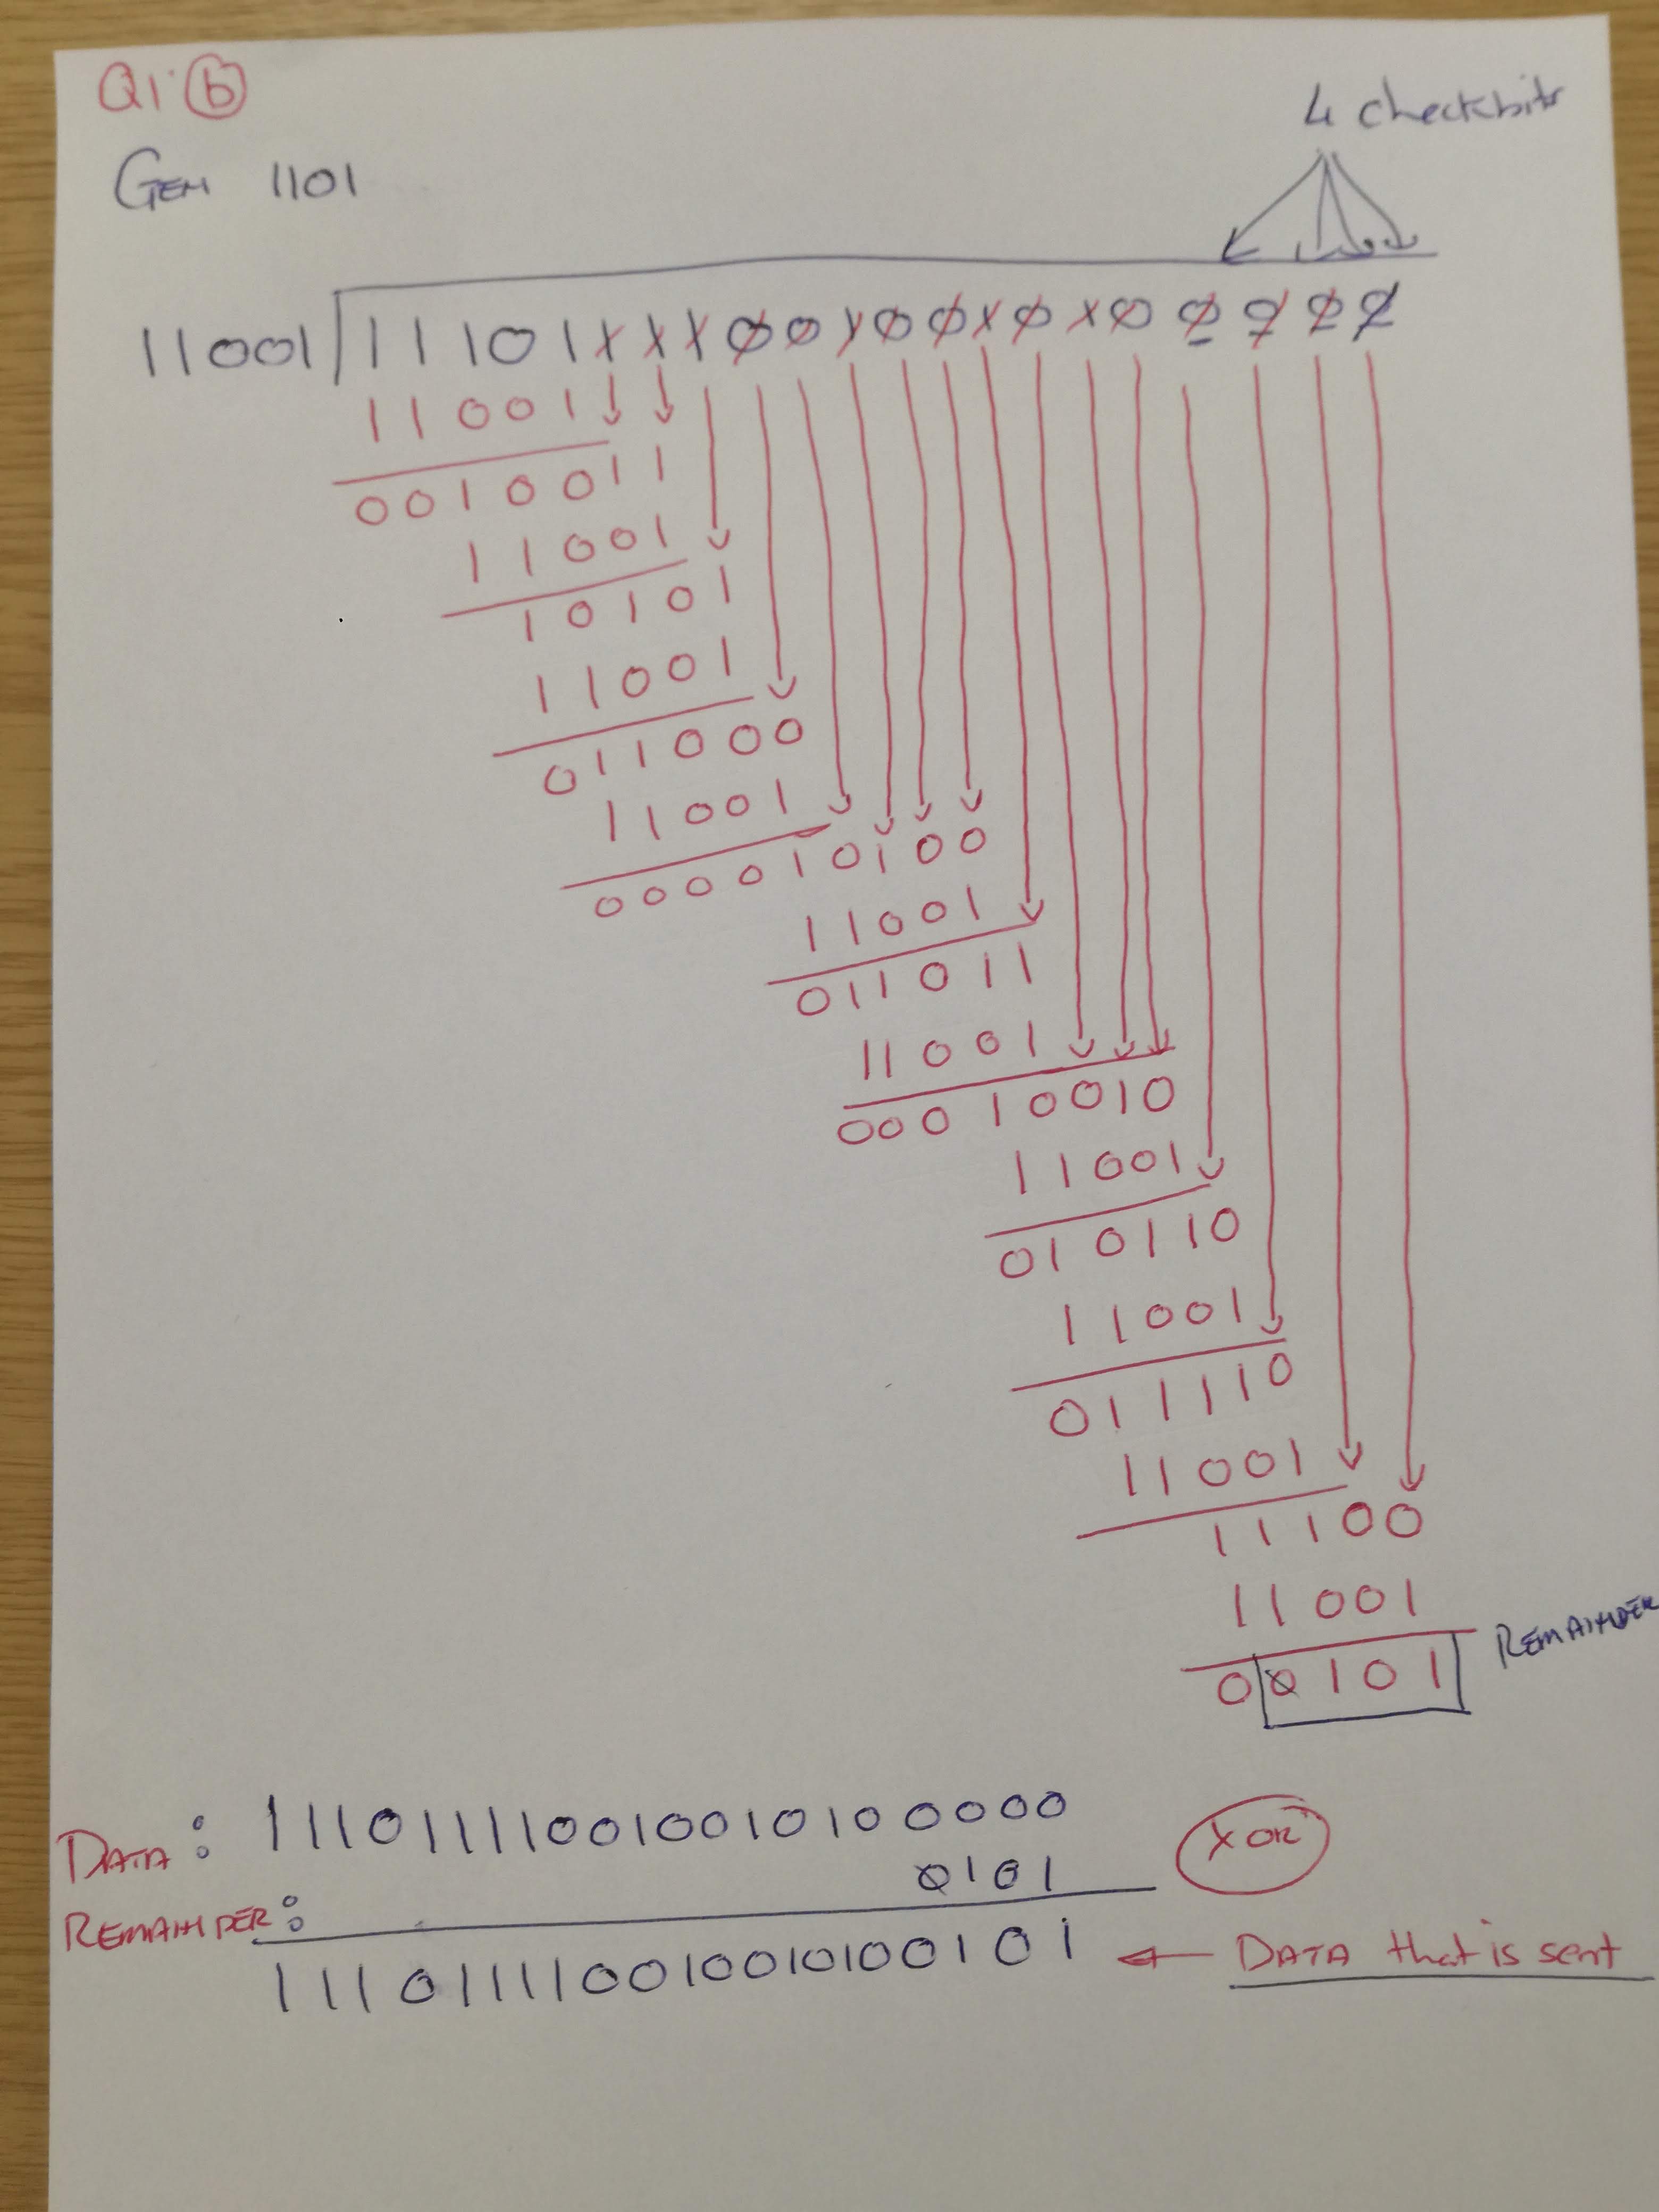 Q1. b
GEN 1101
4 checkbits
11001 11101111001001010 0000
11001
0010011
11001
10101
11001
011000
11001
000010100
11001
011011
11001
00010010
11001
010110
11001
011110
11001
11100
11001
00101 REMAINDER
DATA: 11101111001001010 0000
XOR
REMAINDER: 0101
111011110010010100101 ← DATA that is sent